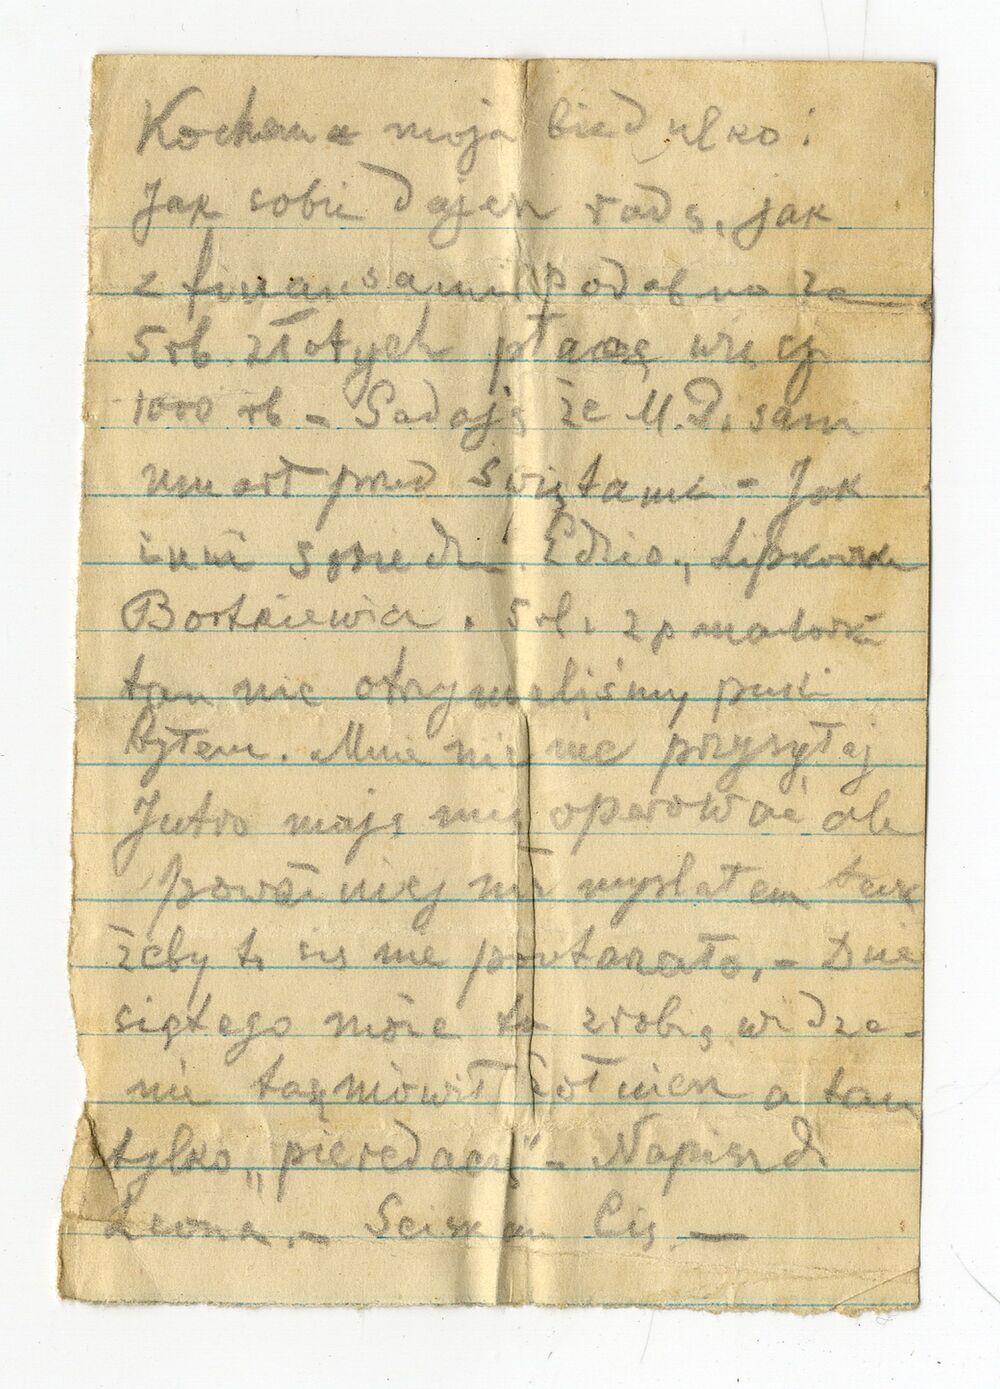 Kochana moja biedulko!
Jak sobie dajesz radę, jak
z finansami podobno za
5 rb. złotych płacą więcej
1000 rb – Sadaję że M.D. sam
umarł przed świętami – Jak
inni sąsiedzi. Edzio., Lipkowski
Bortkiewicz. 5 rb. z
tam nie otrzymaliśmy puki
byłem. Mnie nic nie przysyłaj
Jutro mają mię operować ale
poważniej nie myślałem
żeby to się nie powtarzało. – Dwie
siątego może to zrobią widze-
nie tak mówił żołnierz a tam
tylko „pieredaczę" – Napisz do
Leona. – Sciskam Cię. –